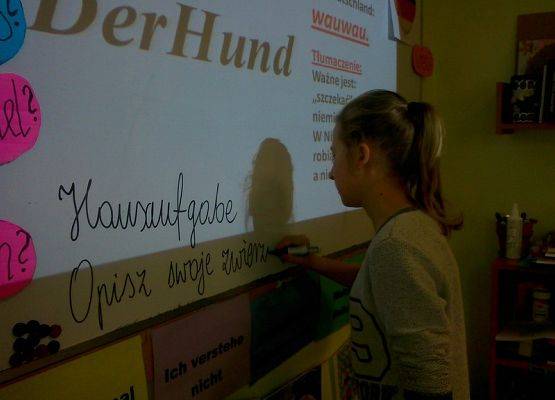 Der Hund
wauwau.
Tłumaczenie:
Ważne jest:
„szczekać"
niemi
W Ni
robi
a ni
Hausaufgabe
Opisz swoje zwierz
Ich verstehe
nicht